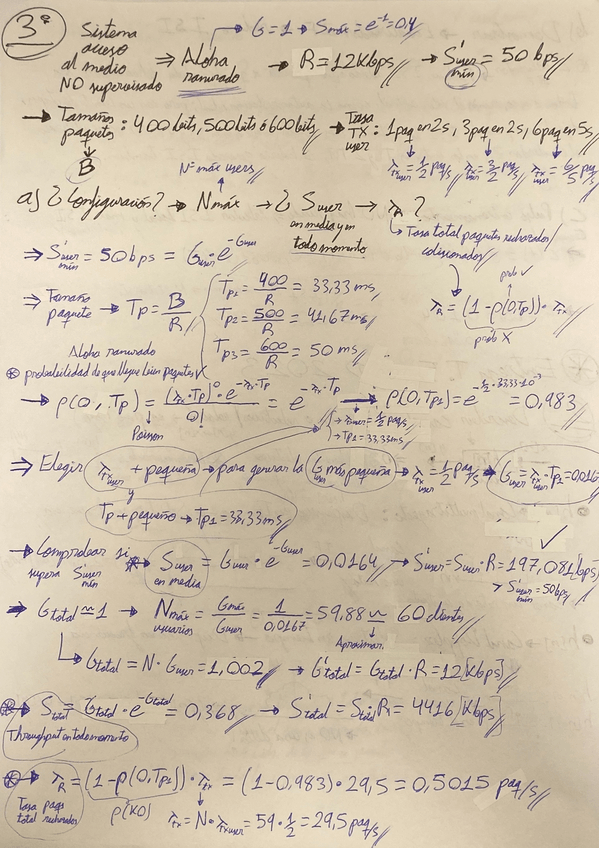 3º
→ G = 1 → Smáx = e^-1 = 0,4
Sistema acceso al medio NO supervisado ⇒ Aloha ranurado → R = 12 Kbps → S'user mín = 50 bps
→ Tamaños paquetes: 400 bits, 500 bits ó 600 bits → Tasa TX user: 1 paq en 2s, 3 paq en 2s, 6 paq en 5s
B
N = máx users
λtx user = 1/2 paq/s λtx user = 3/2 paq/s λtx user = 6/5 paq/s
a) ¿Configuración? → Nmáx → ¿Suser en media y en todo momento → λR?
→ Tasa total paquetes reenviados/colisionados
⇒ S'user mín = 50 bps = Guser · e^-Guser
⇒ Tamaño paquete → Tp = B/R
Tp1 = 400/R = 33,33 ms
Tp2 = 500/R = 41,67 ms
Tp3 = 600/R = 50 ms
prob ✓
λR = (1 - p(0,Tp)) · λtx
prob X
Aloha ranurado
⊛ probabilidad de que llegue bien paquetes
→ p(0, Tp) = (λtx · Tp)^0 · e^-λtx·Tp / 0! = e^-λtx·Tp → p(0,Tp1) = e^-1/2 · 33,33·10^-3 = 0,983
Poisson
→ λtx user = 1/2 paq/s
→ Tp1 = 33,33 ms
⇒ Elegir λtx user + pequeña → para generar la Guser más pequeña → λtx user = 1/2 paq/s → Guser = λtx · Tp1 = 0,016
y
Tp + pequeño → Tp1 = 33,33 ms
→ Comprobar si supera S'user mín ⊛ Suser en media = Guser · e^-Guser = 0,0164 → S'user = Suser · R = 197,081 [bps] ✓
> S'user mín = 50 bps
⇒ Gtotal ≈ 1 → Nmáx usuarios = Gmáx/Guser = 1/0,0167 = 59,88 ≃ 60 clientes
Aproximar.
↳ Gtotal = N · Guser = 1,002 → G'total = Gtotal · R = 12 [Kbps]
⊛ Stotal = Gtotal · e^-Gtotal = 0,368 → S'total = Stotal · R = 4416 [Kbps]
Throughput en todo momento
⊛ → λR = (1 - p(0,Tp1)) · λtx = (1 - 0,983) · 29,5 = 0,5015 paq/s
Tasa paqs total reenviados
p(KO)
λtx = N · λtx user = 59 · 1/2 = 29,5 paq/s